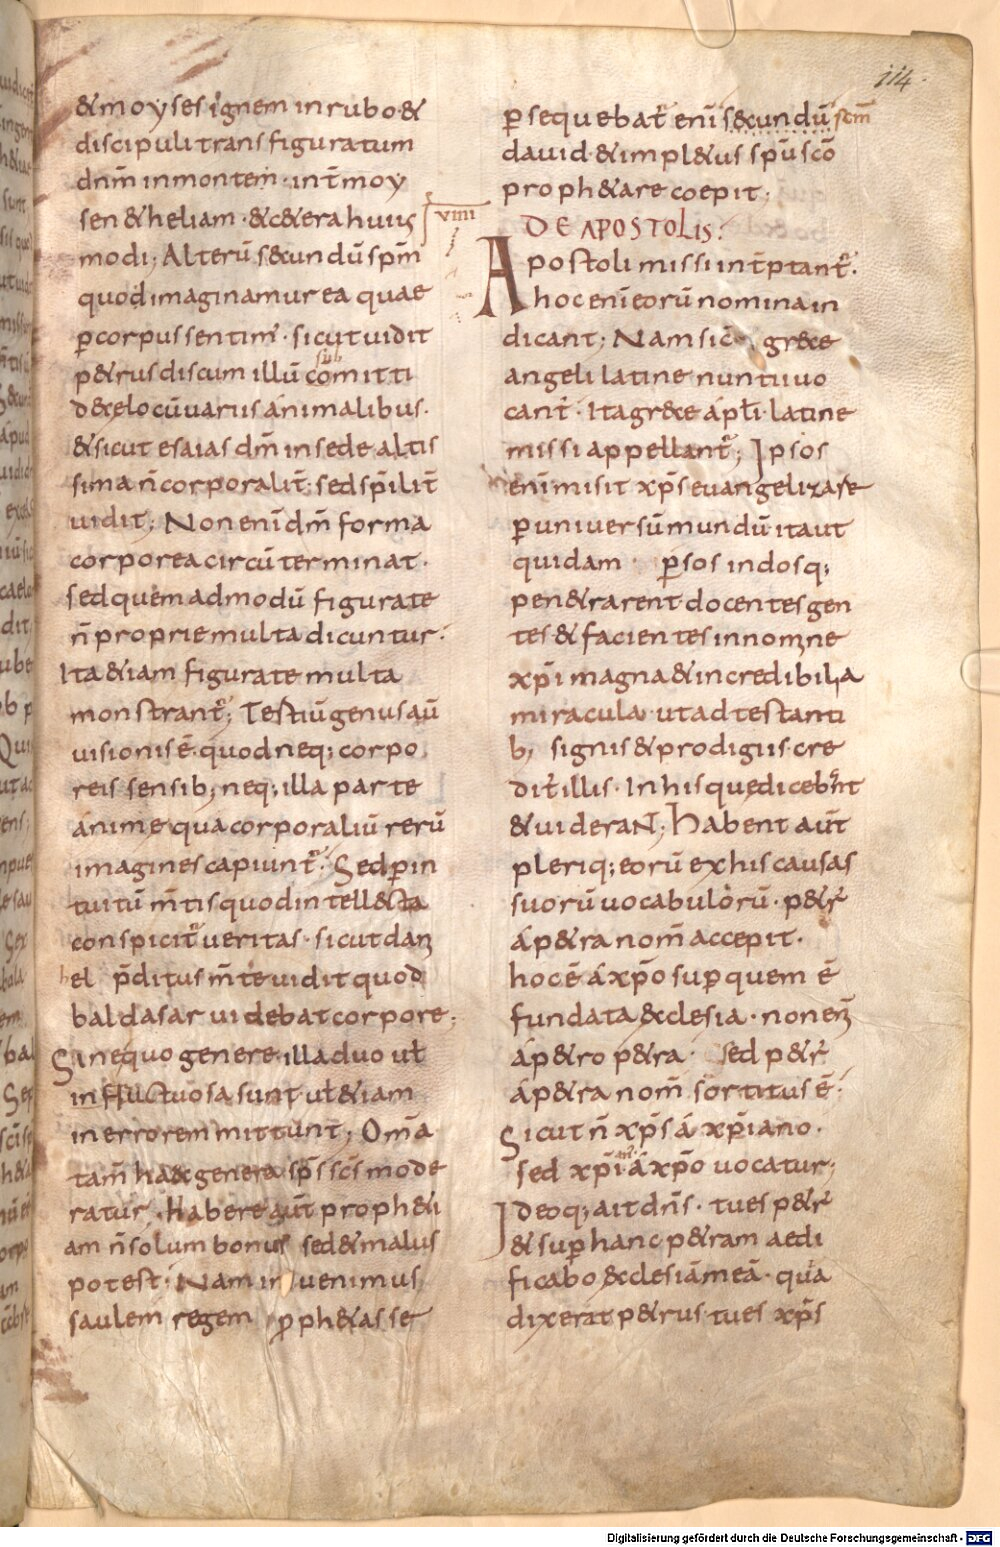 114.
& moyses ignem in rubo · &
discipuli transfiguratum
dn̄m in montem · int̄ moy
sen & heliam · & c&era huius
modi; Alterū s&cundū sp̄m
quod imaginamur ea quae
p̱ corpus sentim᾽ · sicut uidit
p&rus discum illū sūb com̄itti
de cęlo cū uariis animalibus ·
& sicut esaias dm̄ in sede altis
sima n̄ corporalit̄ · sed sp̄ilit̄
uidit; Non enī dm̄ forma
corporea circū terminat ·
sed quemadmodū figurate
n̄ proprie multa dicuntur ·
Ita &iam figurate multa
monstrant᾽; Tertiū genus aū
uisionis ē · quod neq; corpo
reis sensib; neq; illa parte
anime qua corporaliū rerū
imagines capiunt᾽ · Sed p̱ in
tuitū m̄tis quod intell&cta
conspicit᾽ ueritas · sicut dani
hel p̄ditus m̄te uidit quod
baldasar uidebat corpore;
Sine quo genere · illa duo ut̄
infructuosa sunt ut̄ &iam
in errorem mittunt; Om̄a
tam̄ haec genera sp̄s sc̄s mode
ratur · Habere aūt proph&i
am n̄ solum bonus sed & malus
potest · Nam inuenimus
saulem regem p̱ph&asse
p̱sequebat᾽ enī s&cundū sc̄m
dauid · & impl&us sp̄u sc̄o
proph&are coepit ·
viiii
DE APOSTOLIS:
Apostoli missi int̄p̱tant᾽ ·
hoc enī eorū nomina in
dicant; Nam sic̄ grece
angeli latine nuntii uo
cant᾽ · Ita grece apt̄i · latine
missi appellant᾽; Ipsos
enī misit xp̄s euangelizare
p̱ uniuersū mundū ita ut
quidam p̱sos indosq;
pen&rarent docentes gen
tes & facientes in nomine
xp̄i magna & incredibilia
miracula · ut adtestanti
b; signis & prodigiis · cre
dit̄ illis · In his que diceb̄nt
& uiderant; Habent aūt
pleriq; eorū ex his causas
suorū uocabulorū · p&r᾽
a p&ra nom̄ accepit ·
hoc ē a xp̄o sup̱ quem ē
fundata ecclesia · non enī
a p&ro p&ra · sed p&r᾽
a p&ra nom̄ sortitus ē ·
Sicut n̄ xp̄s a xp̄iano ·
sed xp̄ian᾽ a xp̄o uocatur;
Ideoq; ait dn̄s · tu es p&r᾽
& sup̱ hanc p&ram aedi
ficabo ecclesiā meā · quia
dixerat p&rus tu es xp̄s
Digitalisierung gefördert durch die Deutsche Forschungsgemeinschaft - DFG